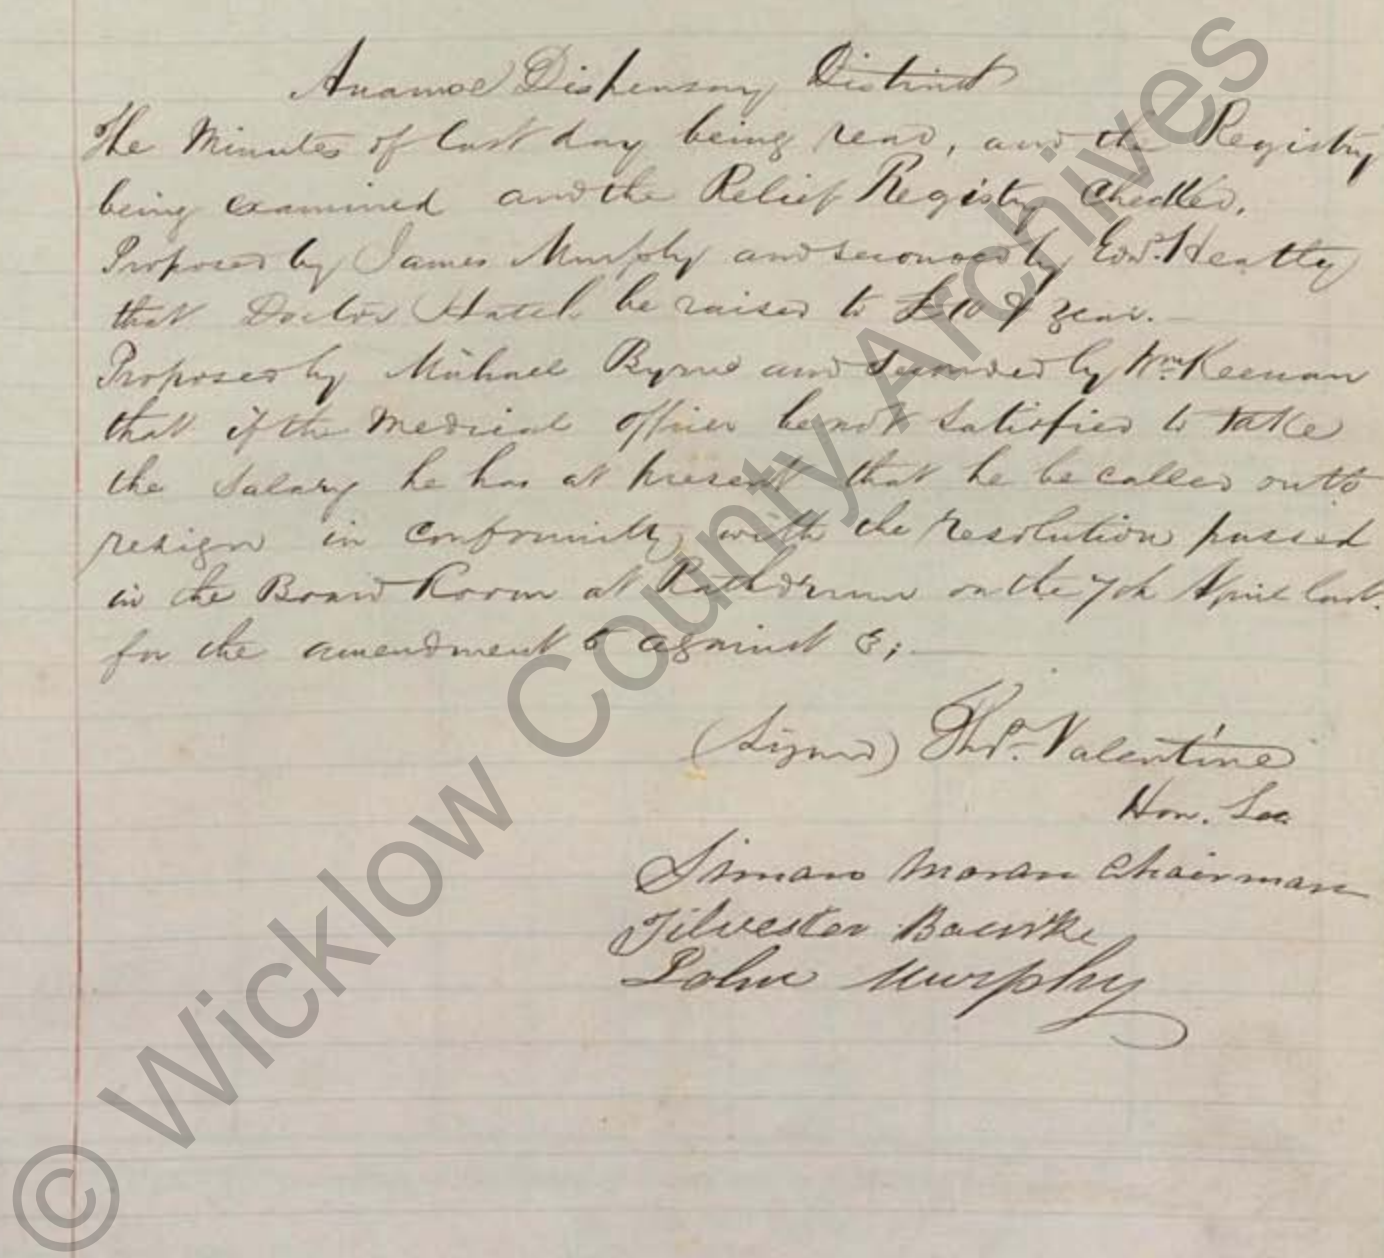 Anamoe Dispensary District
The Minutes of last day being read, and the Registry
being examined and the Relief Registry Checked.
Proposed by James Murphy and seconded by Edwd. Heatly
that Doctor Hatch be raised to £10 ⅌ year.
Proposed by Michael Byrne and seconded by Wm. Keenan
that if the Medical officer be not satisfied to take
the Salary he has at present that he be called on to
resign in conformity with the resolution passed
in the Board Room at Rathdrum on the 7th April last.
for the amendment 6 against 3;
(Signed) Thos. Valentine
Hon. Sec
Siman Moran Chairman
Silvester Bourke
John Murphy
© Wicklow County Archives